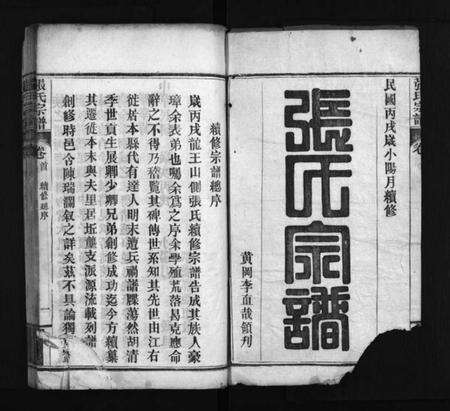 民國丙戌歲小陽月續修
張氏宗譜
黃岡李血哉領刊
續修宗譜總序
歲丙戌龍王山側張氏續修宗譜告成其族人豪
璋余表弟也囑余為之序余學殖荒落曷克應命
辭之不得乃稽覽其碑傳世系知其先世由江右
徙居本縣代有達人明末遭兵禍譜牒蕩然胡清
季世貢生展卿少卿兄弟創修成功迄今方續葉
其遷徙本末與夫里居坵隴支派源流載列譜
創修時邑合陳瑞瀾叙之詳矣茲不具論獨
張氏宗譜
卷首
續修總序
一
張氏宗譜
卷